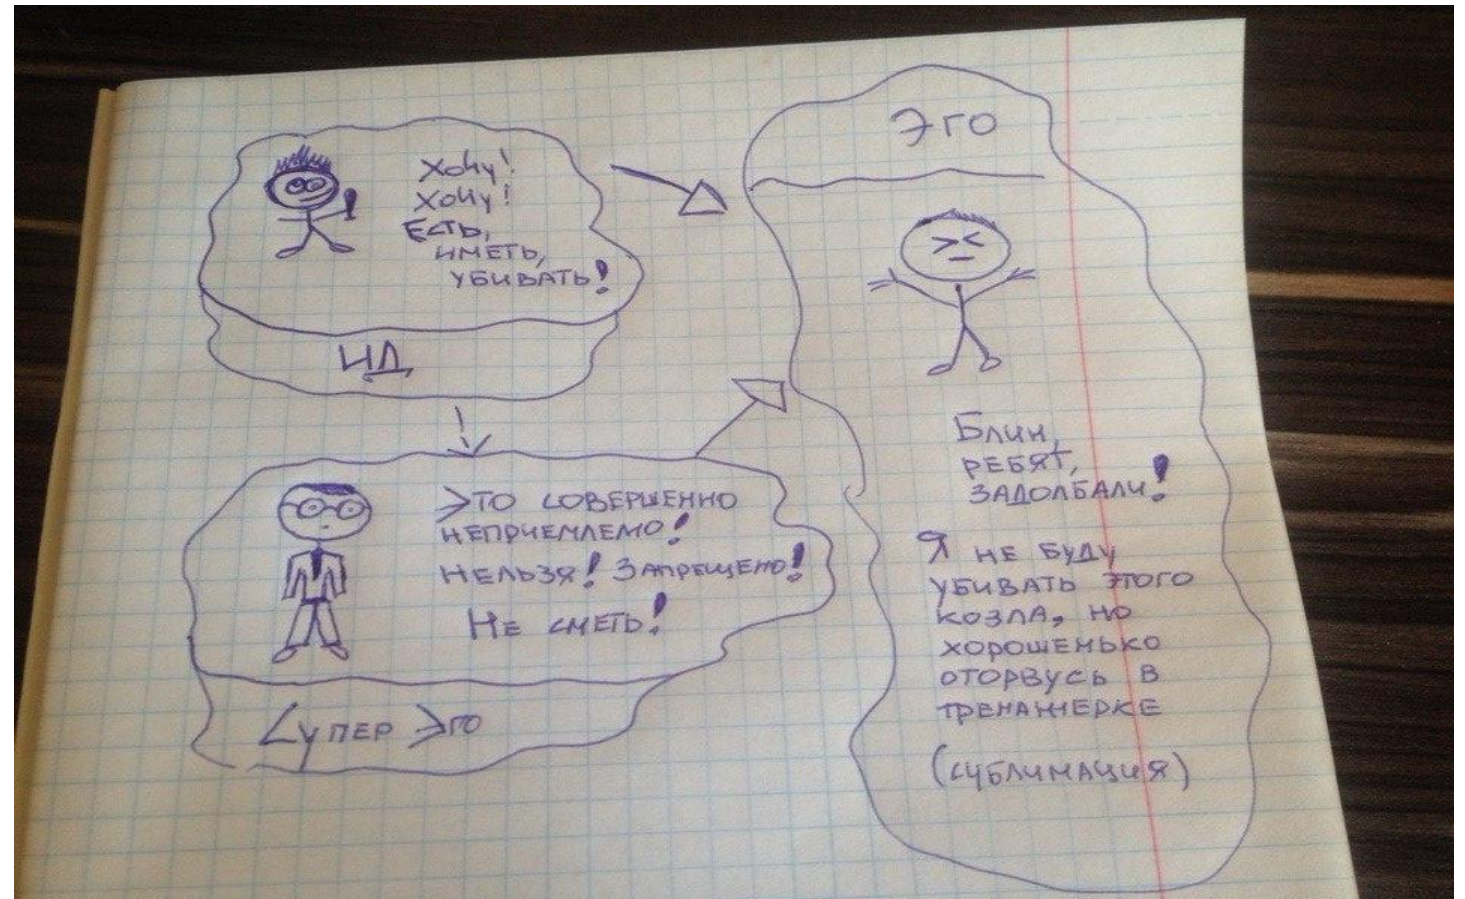 Хочу!
Хочу!
Есть,
иметь,
убивать!
ИД
Это совершенно
неприемлемо!
Нельзя! Запрещено!
Не сметь!
Супер Эго
Эго
Блин,
ребят,
задолбали!
Я не буду
убивать этого
козла, но
хорошенько
оторвусь в
тренажерке
(сублимация)